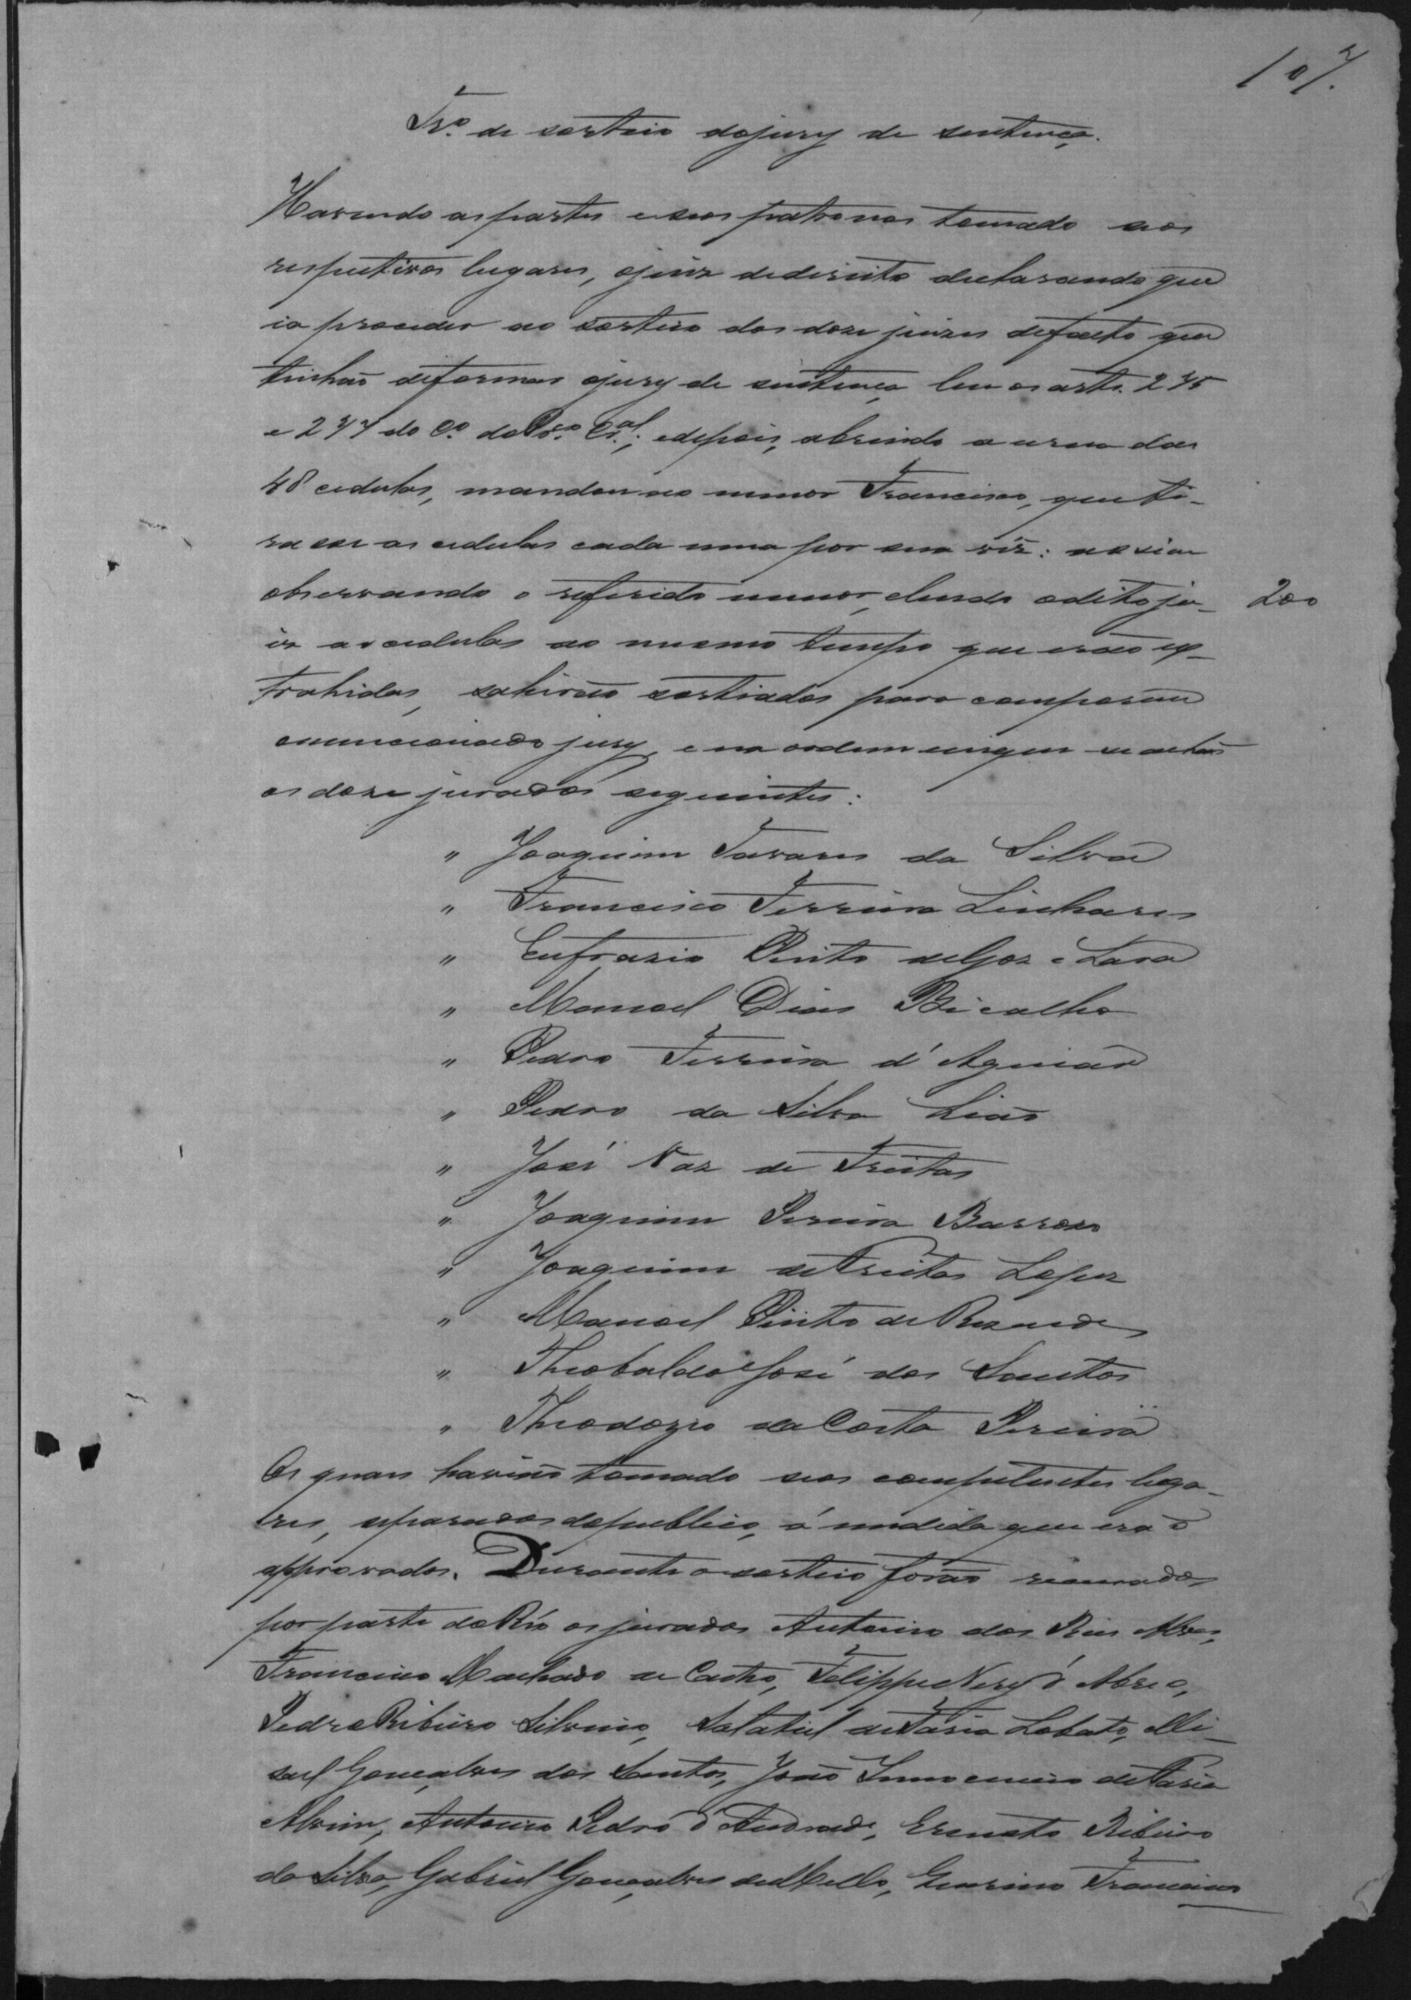 107.
Tr.o de sorteio do jury de sentença.
Havendo as partes e seos patronos tomado seos
respectivos lugares, o juiz de direito declarando que
ia proceder ao sorteio dos doze juizes de facto que
tinhão de formar o jury de sentença, leu os arts. 275
e 277 do C.o do Pro.o Cr.al; e depois, abrindo a urna das
48 cedulas, mandou ao menor Francisco, que ti-
rasse as cedulas cada uma por sua vez: assim
observando o referido menor, e lendo o dito ju-
200
iz as cedulas ao mesmo tempo que erão ex-
trahidas, sahirão sorteados para comporem
o mencionado jury, e na ordem em que se achão
os doze jurados seguintes:
" Joaquim Tavares da Silva
" Francisco Ferreira Linhares
" Eufrazio Pinto de Goz e Lara
" Manoel Dias Bicalho
" Pedro Ferreira d'Aguiar
" Pedro da Silva Lião
" José Vaz de Freitas
" Joaquim Pereira Barrozo
" Joaquim de Freitas Lopes
" Manoel Pinto de Rezende
" Theobaldo José dos Santos
" Theodozio da Costa Pereira
Os quaes havião tomado seos competentes luga-
res, separados do publico, á medida que erão
approvados. Durante o sorteio forão recusados
por parte do Réo os jurados Antonio dos Reis Alves,
Francisco Machado de Castro, Felippe Nery d'Abreo,
Pedro Ribeiro Silvino, Salatiel de Faria Lobato, Mi-
sael Gonçalves dos Santos, João Innocencio de Faria
Alvim, Antonio Pedro d'Andrade, Ernesto Ribeiro
da Silva, Gabriel Gonçalves de Mello, Francisco